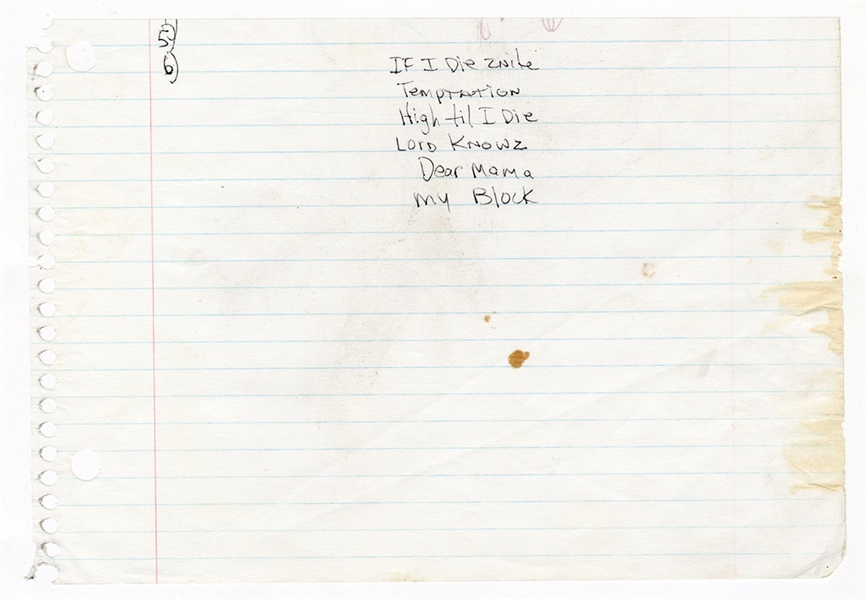 5)
6)
IF I Die 2nite
Temptation
High til I Die
Lord Knowz
Dear Mama
My Block